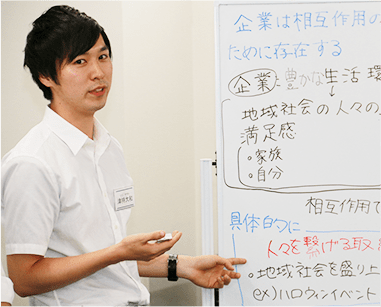 企業は相互作用の
ために存在する
企業:豊かな生活 環
↓
地域社会の人々の
満足感
・家族
・自分
相互作用で
具体的に
人々を繋げる取
・地域社会を盛り上
ex)ハロウィンイベント